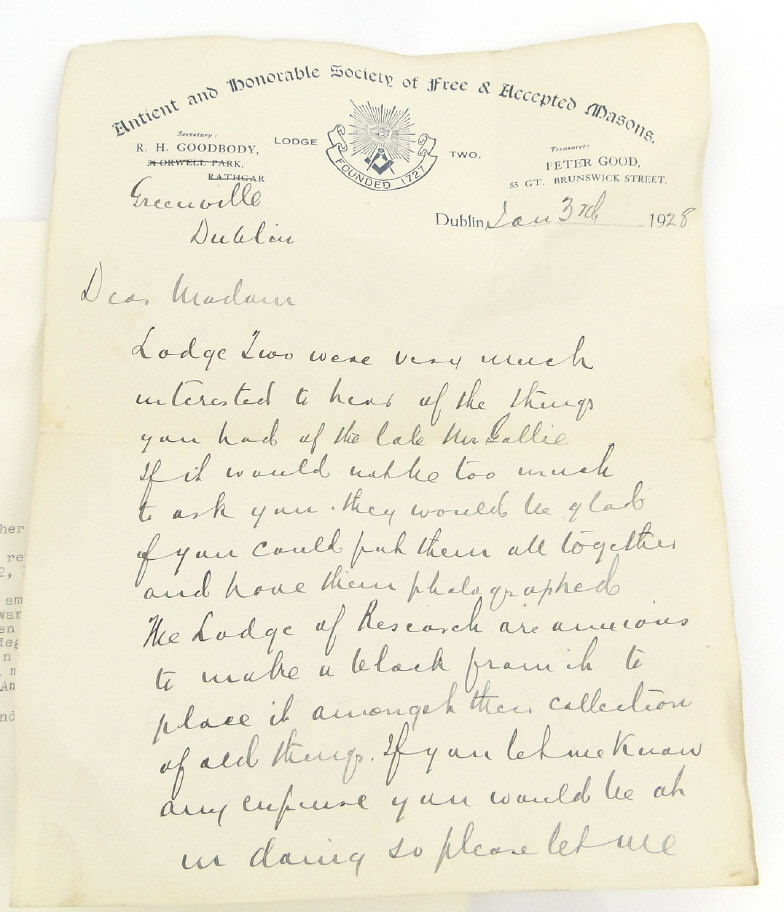 Antient and Honorable Society of Free & Accepted Masons.
Secretary:
R. H. GOODBODY,
ORWELL PARK,
RATHGAR
LODGE
TWO,
FOUNDED 1727
Treasurer:
PETER GOOD,
55 GT. BRUNSWICK STREET.
Greenville
Dublin
Dublin, Jan 3rd 1928
Dear Madam
Lodge Two were very much
interested to hear of the things
you had of the late Mr Gallie
If it would not be too much
to ask you. they would be glad
if you could put them all together
and have them photographed
The Lodge of Research are anxious
to make a block from it to
place it amongst their collection
of old things. If you let me know
any expense you would be at
in doing so please let me
her
re
2,
am
war
en
deg
n
An
nd